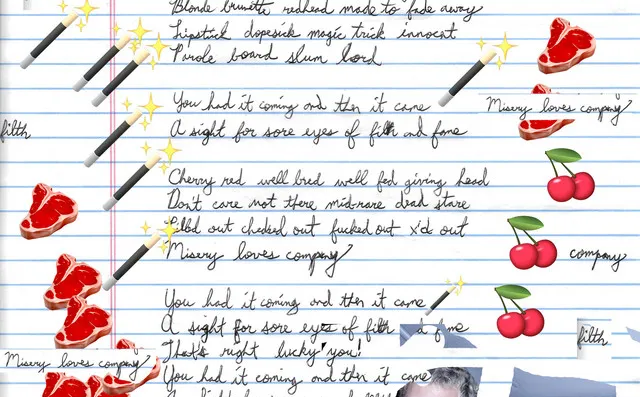 Blonde brunette redhead made to fade away
Lipstick dopesick magic trick innocent
Parole board slum lord
You had it coming and then it came
Misery loves company
A sight for sore eyes of filth and fame
filth
Cherry red well bred well fed giving head
Don't care not there mid-rare dead stare
checked out fucked out x'd out
Misery loves company
company
You had it coming and then it came
A sight for sore eyes of filth fame
filth
That's right lucky you!
Misery loves company
You had it coming and then it came